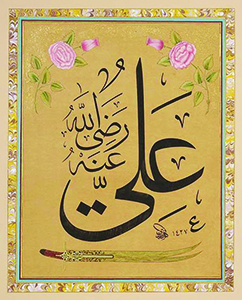 عَلِيّ
رَضِيَ اللّٰه
عَنْهُ
١٤٢٧